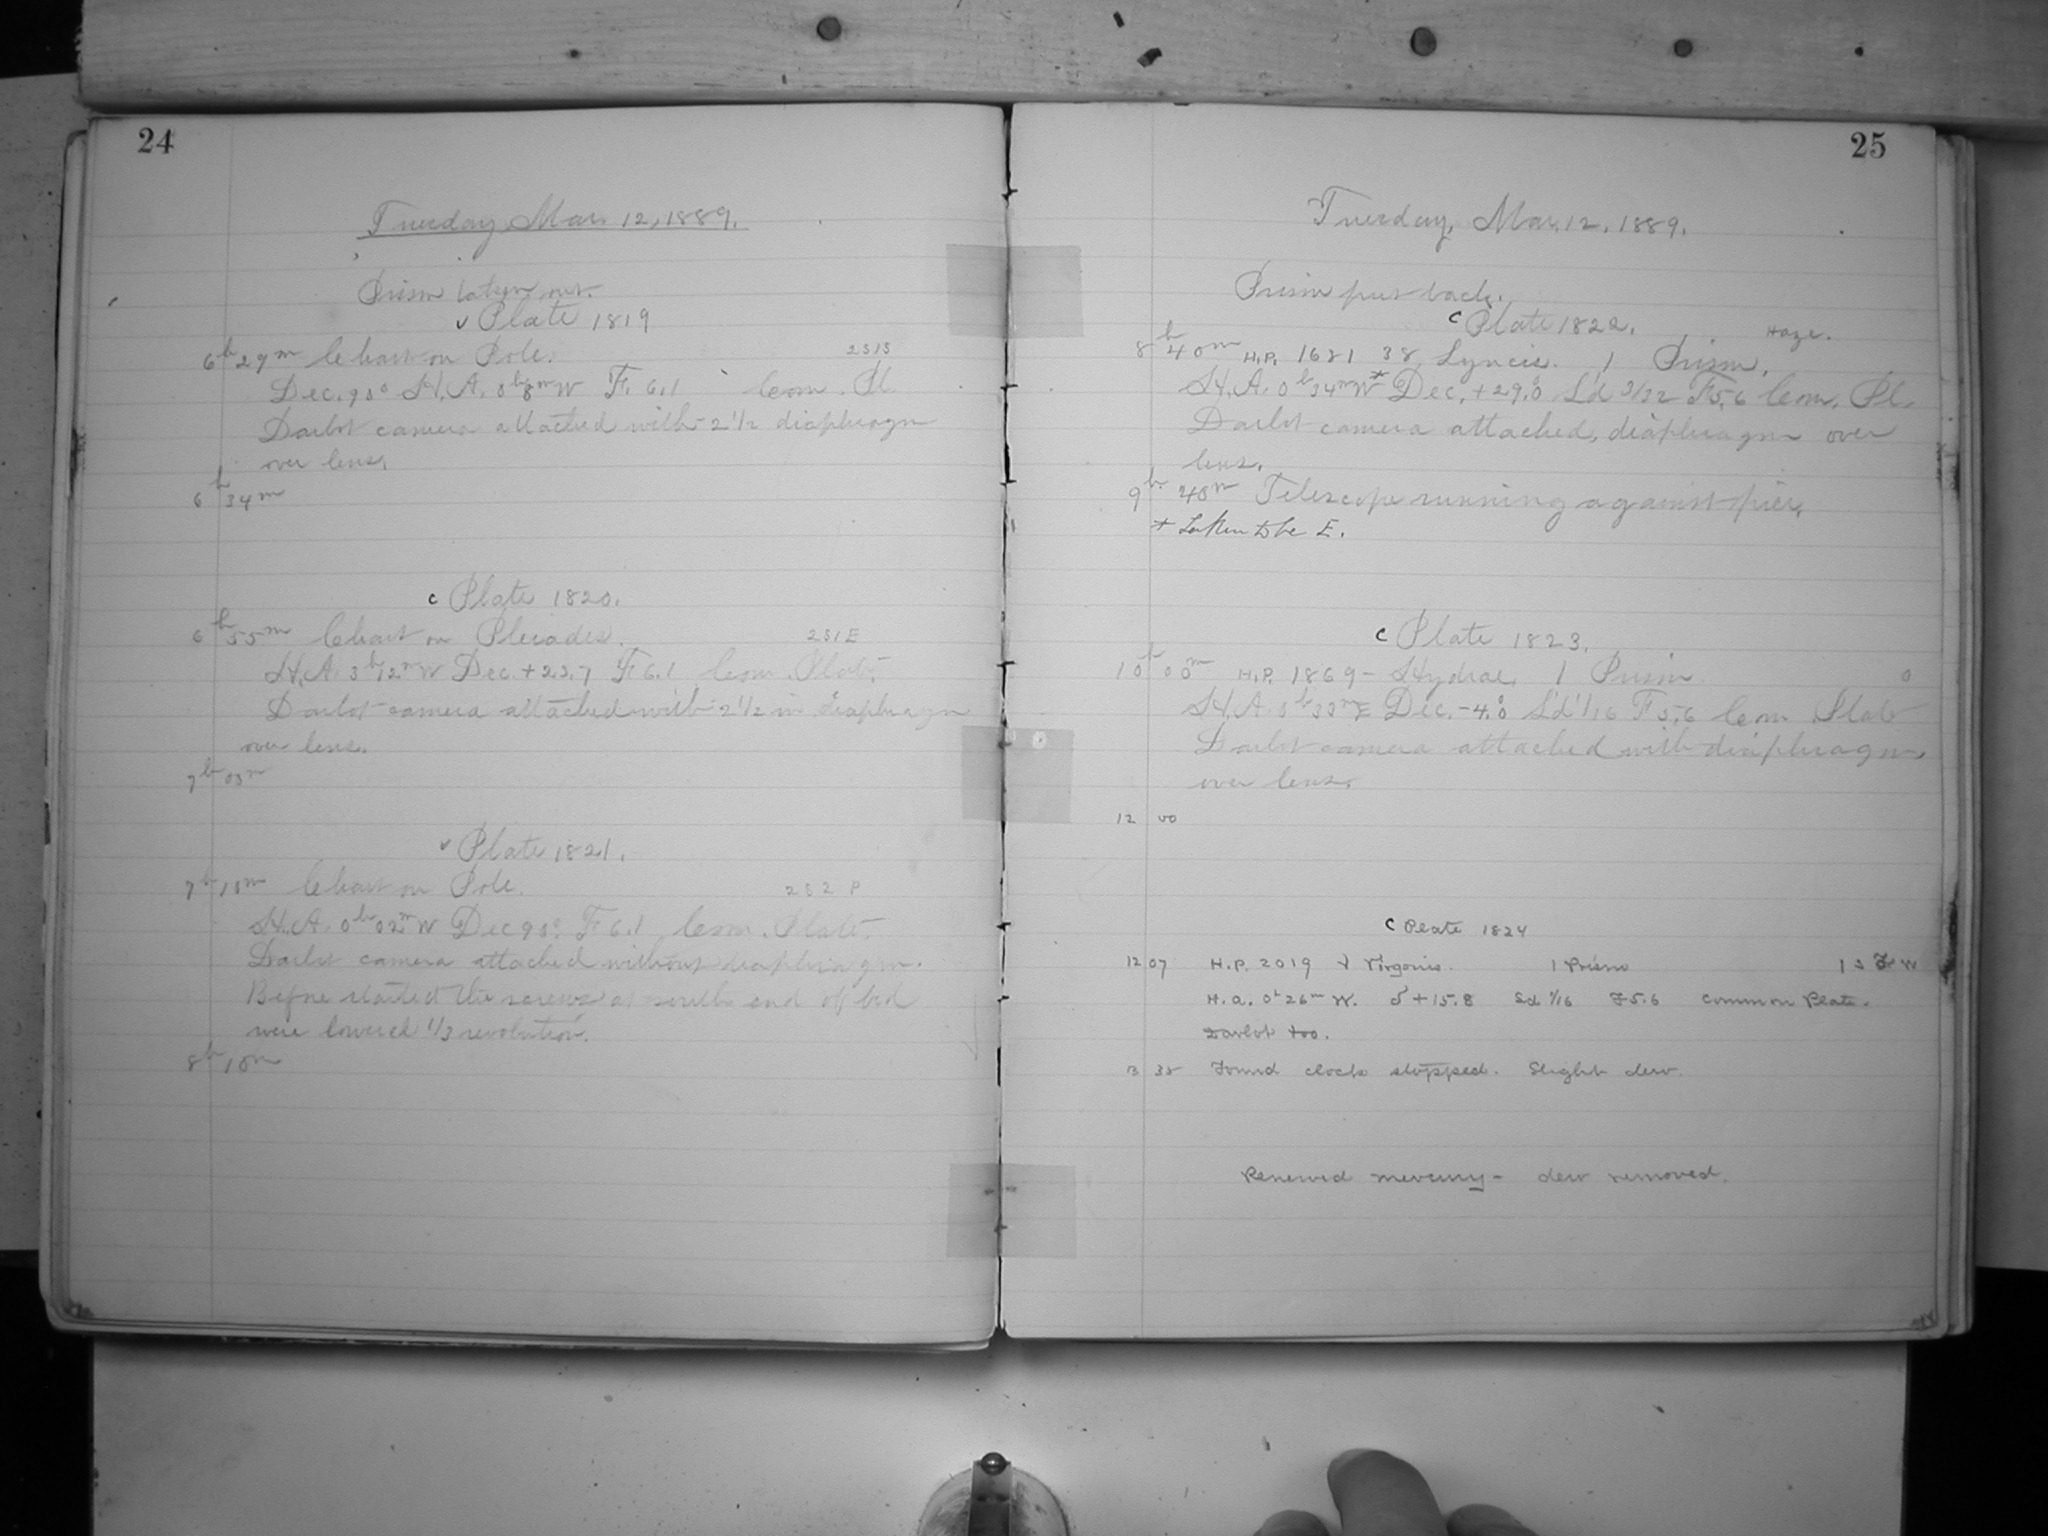 24
Tuesday Mar. 12, 1889.
Prism taken out.
v Plate 1819
6h 29m Chart on Pole.
Dec. 90° H.A. 0h 8m W F. 6.1 Com. Pl.
Darlot camera attached with 2 1/2 diaphragm
over lens.
6h 34m
c Plate 1820.
6h 55m Chart on Pleiades. 231 E
H.A. 3h 12m W Dec. + 23.7 F 6.1 Com. Plate.
Darlot camera attached with 2 1/2 in diaphragm
over lens.
7h 03m
v Plate 1821.
7h 10m Chart on Pole. 232 P
H.A. 0h 02m W Dec 90°. F 6.1 Com. Plate.
Darlot camera attached without diaphragm.
Before started the screws at south end of bed
were lowered 1/3 revolution.
8h 10m
25
Tuesday, Mar. 12, 1889.
Prism put back.
c Plate 1822. Haze.
8h 40m H.P. 1621 38 Lyncis. 1 Prism.
H.A. 0h 34m W* Dec. + 29.°0 S'd 3/32 F 5.6 Com. Pl.
Darlot camera attached, diaphragm over
lens.
9h 40m Telescope running against pier.
* Taken to be E.
c Plate 1823.
10h 00m H.P. 1869 - Hydrae, 1 Prism. 0
H.A. 0h 33m E Dec. - 4.°0 S'd 1/16 F 5.6 Com. Plate
Darlot camera attached with diaphragm
over lens.
12 00
c Plate 1824
12 07 H.P. 2019 Virginis. 1 Prism
H.A. 0h 26m W. δ + 15.8 Sd 1/16 F 5.6 Common Plate.
Darlot too.
13 35 Found clock stopped. Slight dew.
Renewed mercury - dew removed.